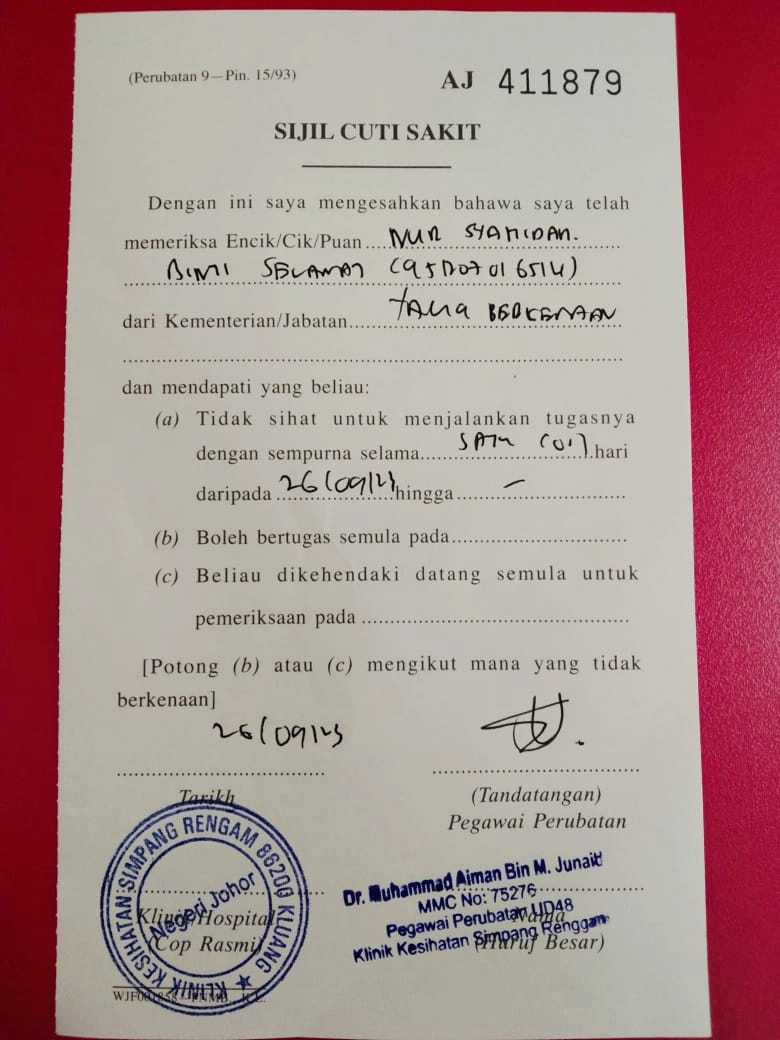 (Perubatan 9—Pin. 15/93)
AJ 411879
SIJIL CUTI SAKIT
Dengan ini saya mengesahkan bahawa saya telah
memeriksa Encik/Cik/Puan....NUR SYAHIDAH.
BINTI SELAMAT (951207016514)
dari Kementerian/Jabatan........TANG BERKENAAN
dan mendapati yang beliau:
(a) Tidak sihat untuk menjalankan tugasnya
dengan sempurna selama......SATU (01).hari
daripada 26/09/23 hingga.......–.......
(b) Boleh bertugas semula pada..............................
(c) Beliau dikehendaki datang semula untuk
pemeriksaan pada ..............................
[Potong (b) atau (c) mengikut mana yang tidak
berkenaan]
26/09/23
Tarikh
(Tandatangan)
Pegawai Perubatan
KLINIK KESIHATAN SIMPANG RENGAM 86200 KLUANG
Negeri Johor
Klinik/Hospital
(Cop Rasmi)
Dr. Muhammad Aiman Bin M. Junaid
MMC No: 75276
Pegawai Perubatan UD48
Klinik Kesihatan Simpang Renggam
Nama
(Huruf Besar)
PNMB., K.L.